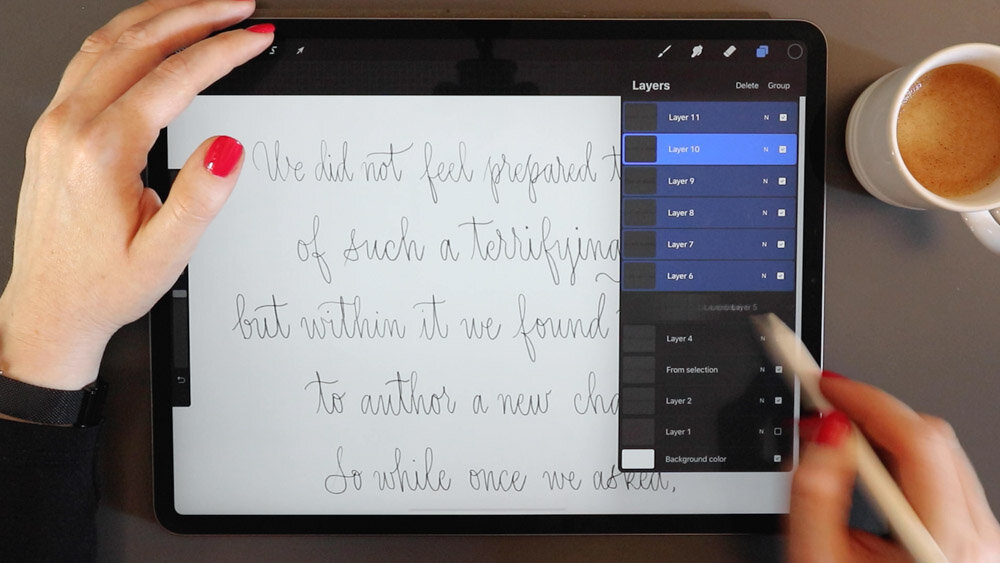 Layers
Delete
Group
Layer 11 N
Layer 10 N
Layer 9 N
Layer 8 N
Layer 7 N
Layer 6 N
Layer 5
Layer 4 N
From selection N
Layer 2 N
Layer 1 N
Background color
We did not feel prepared
of such a terrifying
but within it we found
to author a new
So while once we asked,